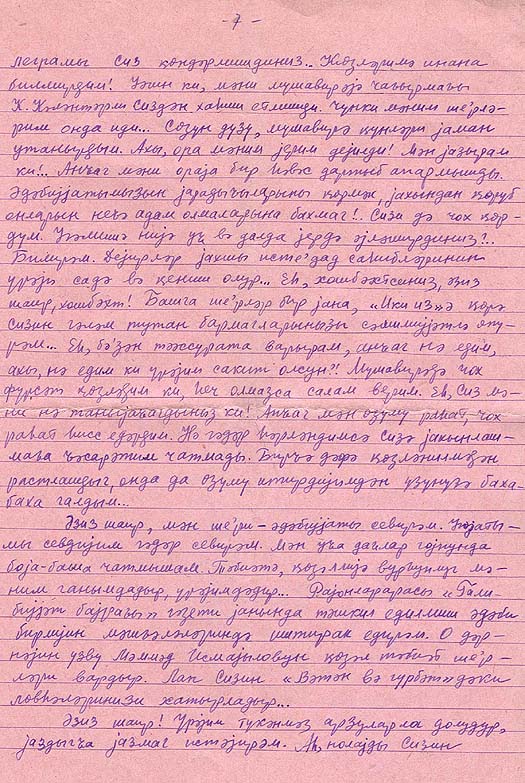 - 7 -
леграмы сиз ҝөндәрмишдиниз.. Көзләримә инана
билмирдим! Үәгин ки, мәни мушавирәјә чағырмағы
К. Кәләнтәрли сиздән хаһиш етмишди. Чүнки мәним ше'рлә-
рим онда иди... Сөзүн дүзү, мүшавирә ҝүнләри јаман
утанырдым. Ахы, ора мәним јерим дејилди! Мән јазырам
ки!.. Анҹаг мәни ораја бир һәвәс дартыб апармышды.
Әдәбијјатымызын јарадыҹыларыны ҝөрмәк, јахындан ҝөрүб
онларын неҹә адам олмаларына бахмаг!.. Сизи дә чох ҝөр-
дүм. Һәмишә нијә уҹ вә далда јердә әјләширдиниз?..
Билирәм. Дејирләр јахшы исте'дад саһибләринин
үрәји садә вә ҝениш олур... Еһ, хошбәхтсиниз, әзиз
шаир, хошбәхт! Башга ше'рләр бир јана, «Ики из»ә ҝөрә
сизин гәләм тутан бармагларынызы сәмимијјәтлә өпү-
рәм... Еһ, бә'зән тәәссурата варырам, анҹаг нә едим,
ахы, нә едим ки үрәјим сакит олсун?! Мушавирәдә чох
фүрсәт ҝөзләдим ки, һеч олмазса салам верим. Еһ, сиз мә-
ни нә танијаҹагдыныз ки! Анҹаг мән өзүмү раһат, чох
раһат һисс едәрдим. Нә гәдәр һәрләндимсә сизә јахынлаш-
маға ҹәсарәтим чатмады. Бирҹә дәфә ҝөзләнилмәдән
растлашдыг, онда да өзүмү итирдијимдән үзүнүзә баха-
баха галдым...
Әзиз шаир, мән ше'ри - әдәбијјаты севирәм. Һәјаты-
мы севдијим гәдәр севирәм. Мән уҹа дағлар гојнунда
боја-баша чатмышам. Тәбиәтә, ҝөзәллијә вурғунлуг мә-
ним ганымдадыр, үрәјимдәдир... Рајонларарасы «Гали-
бијјәт бајрағы» гәзети јанында тәшкил едилмиш әдәби
бирлијин мәшғәләләриндә иштирак едирәм. О дәр-
нәјин үзвү Мәммәд Исмајыловун ҝөзәл тәбиәт ше'р-
ләри вардыр. Лап Сизин «Вәтән вә гүрбәт»дәки
ловһәләринизи хатырладыр...
Әзиз шаир! Үрәјим түкәнмәз арзуларла долудур,
јаздыгҹа јазмаг истәјирәм. Аһ, нолајды Сизин